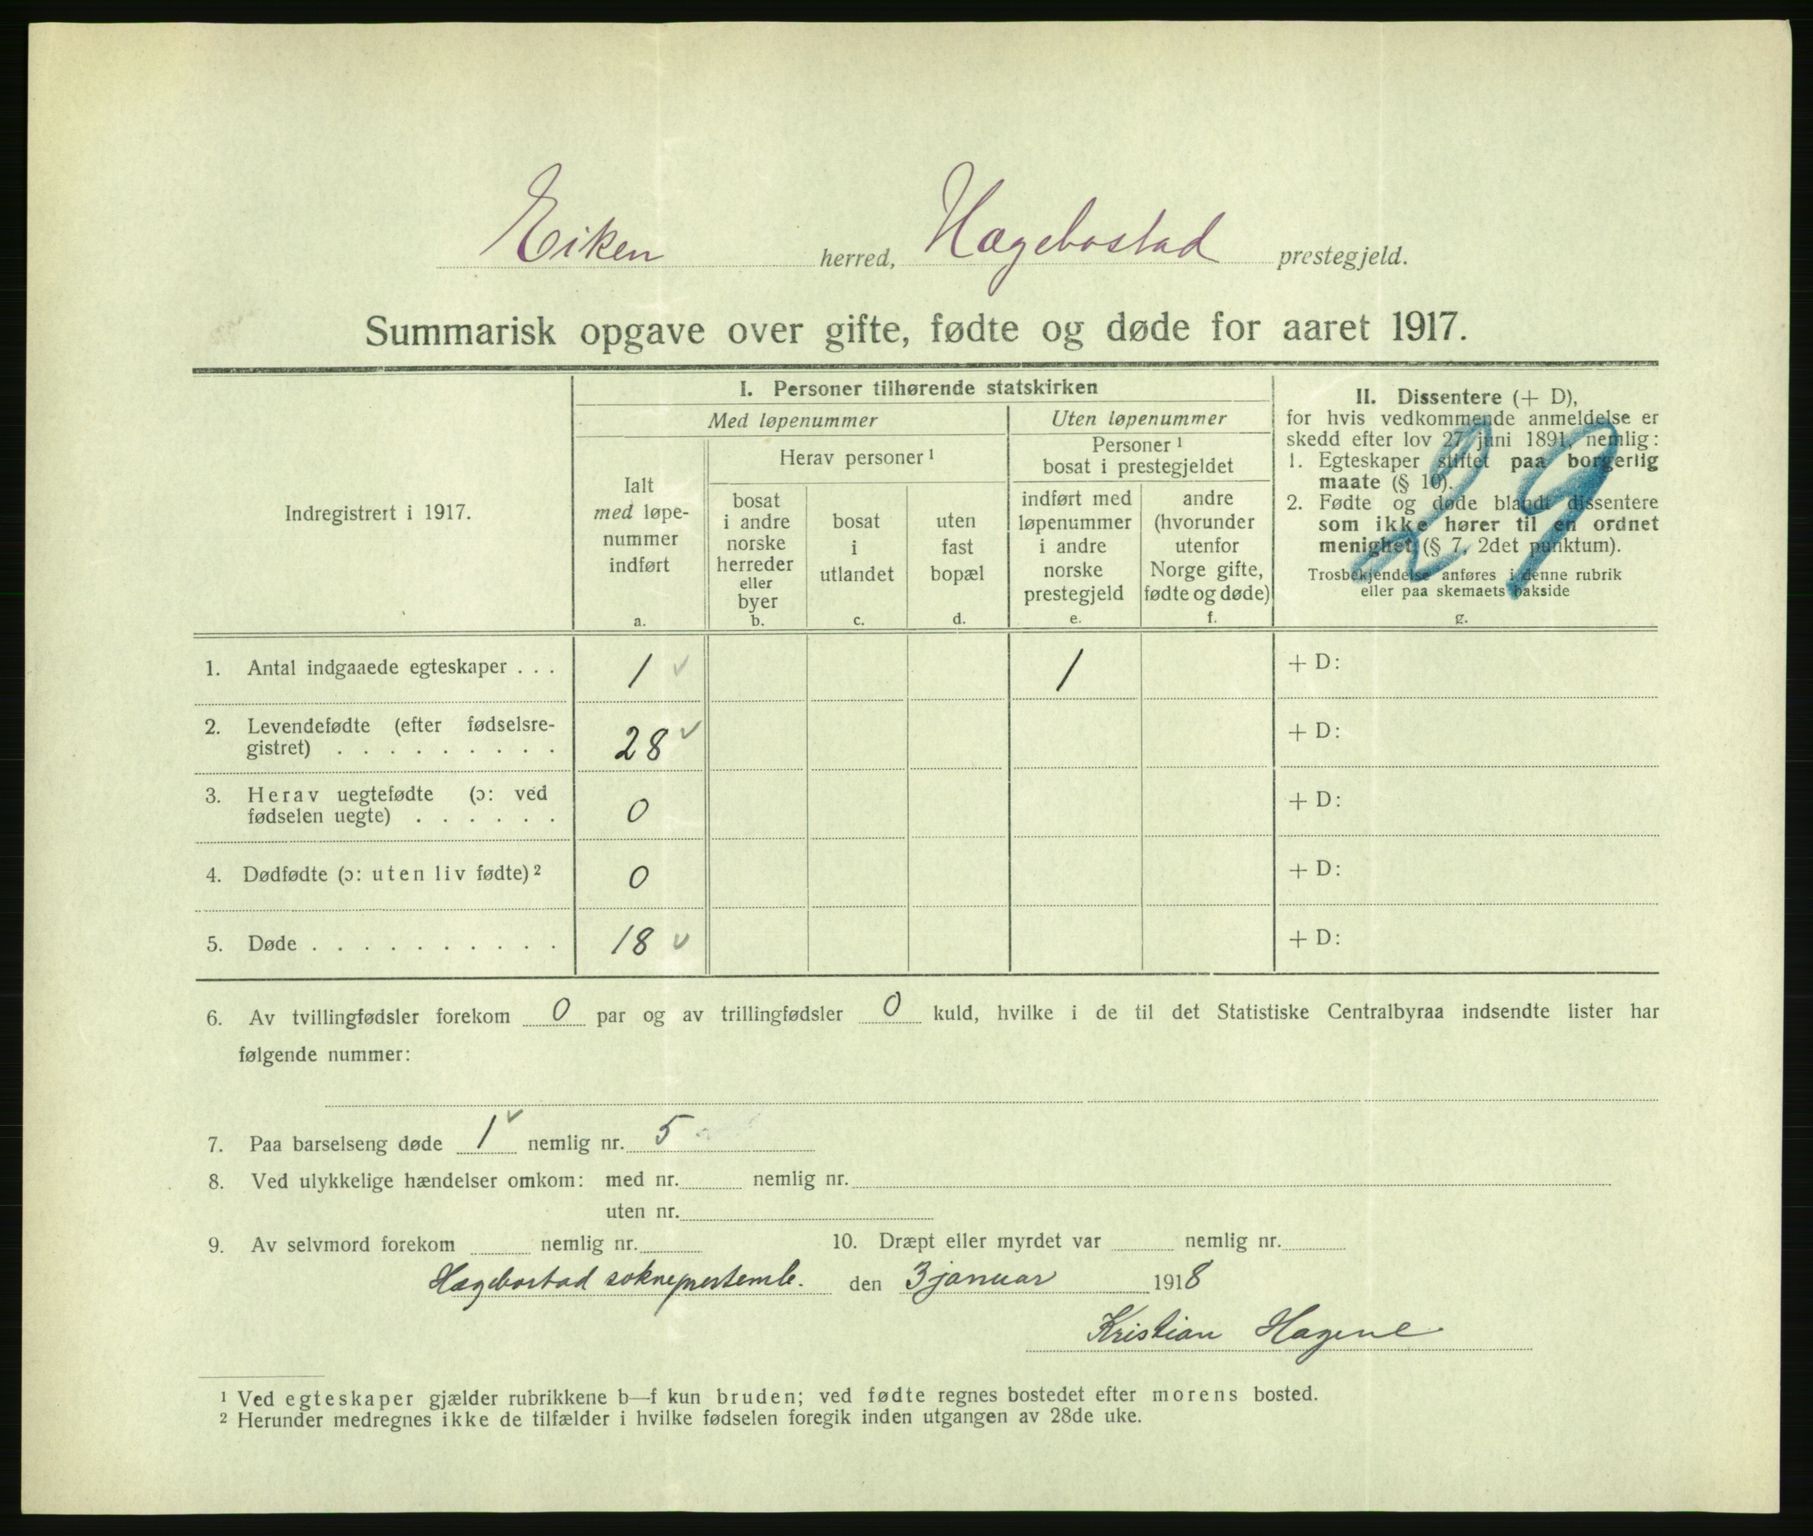 Eiken herred, Hægebostad prestegjeld.
Summarisk opgave over gifte, fødte og døde for aaret 1917.
Indregistrert i 1917.
I. Personer tilhørende statskirken
Med løpenummer
Uten løpenummer
Ialt
med løpe-
nummer
indført
a.
Herav personer ¹
bosat
i andre
norske
herreder
eller
byer
b.
bosat
i
utlandet
c.
uten
fast
bopæl
d.
Personer ¹
bosat i prestegjeldet
indført med
løpenummer
i andre
norske
prestegjeld
e.
andre
(hvorunder
utenfor
Norge gifte,
fødte og døde)
f.
II. Dissentere (+ D),
for hvis vedkommende anmeldelse er
skedd efter lov 27 juni 1891, nemlig:
1. Egteskaper stiftet paa borgerlig
maate (§ 10).
2. Fødte og døde blandt dissentere
som ikke hører til en ordnet
menighet (§ 7, 2det punktum).
Trosbekjendelse anføres i denne rubrik
eller paa skemaets bakside
g.
29
1. Antal indgaaede egteskaper . . . 1 1 + D:
2. Levendefødte (efter fødselsre-
gistret) . . . . . . . . . 28 + D:
3. Herav uegtefødte (ɔ: ved
fødselen uegte) . . . . . . 0 + D:
4. Dødfødte (ɔ: uten liv fødte) ² 0 + D:
5. Døde . . . . . . . . . . 18 + D:
6. Av tvillingfødsler forekom 0 par og av trillingfødsler 0 kuld, hvilke i de til det Statistiske Centralbyraa indsendte lister har
følgende nummer:
7. Paa barselseng døde 1 nemlig nr. 5
8. Ved ulykkelige hændelser omkom: med nr. nemlig nr.
uten nr.
9. Av selvmord forekom nemlig nr. 10. Dræpt eller myrdet var nemlig nr.
Hægebostad sokneprestemb. den 3 januar 1918
Kristian Hagene
¹ Ved egteskaper gjælder rubrikkene b—f kun bruden; ved fødte regnes bostedet efter morens bosted.
² Herunder medregnes ikke de tilfælder i hvilke fødselen foregik inden utgangen av 28de uke.